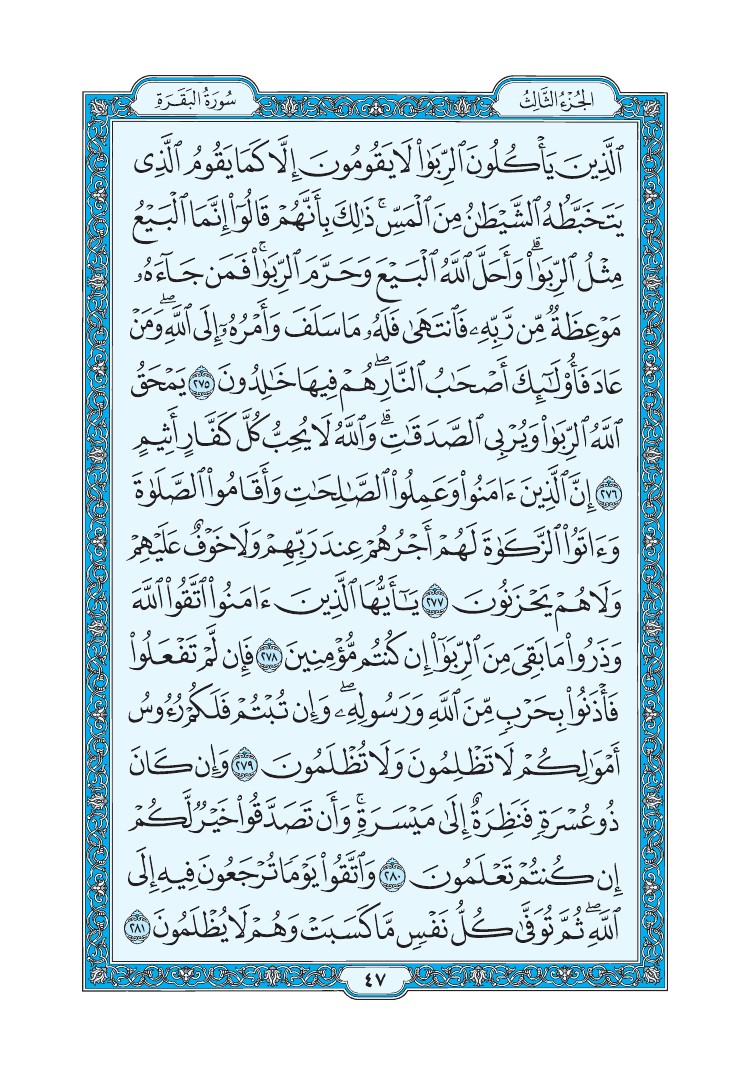 الجُزْءُ الثَّالِثُ
سُورَةُ البَقَرَةِ
ٱلَّذِينَ يَأۡكُلُونَ ٱلرِّبَوٰاْ لَا يَقُومُونَ إِلَّا كَمَا يَقُومُ ٱلَّذِي
يَتَخَبَّطُهُ ٱلشَّيۡطَٰنُ مِنَ ٱلۡمَسِّۚ ذَٰلِكَ بِأَنَّهُمۡ قَالُوٓاْ إِنَّمَا ٱلۡبَيۡعُ
مِثۡلُ ٱلرِّبَوٰاْۗ وَأَحَلَّ ٱللَّهُ ٱلۡبَيۡعَ وَحَرَّمَ ٱلرِّبَوٰاْۚ فَمَن جَآءَهُۥ
مَوۡعِظَةٞ مِّن رَّبِّهِۦ فَٱنتَهَىٰ فَلَهُۥ مَا سَلَفَ وَأَمۡرُهُۥٓ إِلَى ٱللَّهِۖ وَمَنۡ
عَادَ فَأُوْلَٰٓئِكَ أَصۡحَٰبُ ٱلنَّارِۖ هُمۡ فِيهَا خَٰلِدُونَ ٢٧٥ يَمۡحَقُ
ٱللَّهُ ٱلرِّبَوٰاْ وَيُرۡبِي ٱلصَّدَقَٰتِۗ وَٱللَّهُ لَا يُحِبُّ كُلَّ كَفَّارٍ أَثِيمٍ
٢٧٦ إِنَّ ٱلَّذِينَ ءَامَنُواْ وَعَمِلُواْ ٱلصَّٰلِحَٰتِ وَأَقَامُواْ ٱلصَّلَوٰةَ
وَءَاتَوُاْ ٱلزَّكَوٰةَ لَهُمۡ أَجۡرُهُمۡ عِندَ رَبِّهِمۡ وَلَا خَوۡفٌ عَلَيۡهِمۡ
وَلَا هُمۡ يَحۡزَنُونَ ٢٧٧ يَٰٓأَيُّهَا ٱلَّذِينَ ءَامَنُواْ ٱتَّقُواْ ٱللَّهَ
وَذَرُواْ مَا بَقِيَ مِنَ ٱلرِّبَوٰٓاْ إِن كُنتُم مُّؤۡمِنِينَ ٢٧٨ فَإِن لَّمۡ تَفۡعَلُواْ
فَأۡذَنُواْ بِحَرۡبٖ مِّنَ ٱللَّهِ وَرَسُولِهِۦۖ وَإِن تُبۡتُمۡ فَلَكُمۡ رُءُوسُ
أَمۡوَٰلِكُمۡ لَا تَظۡلِمُونَ وَلَا تُظۡلَمُونَ ٢٧٩ وَإِن كَانَ
ذُو عُسۡرَةٖ فَنَظِرَةٌ إِلَىٰ مَيۡسَرَةٖۚ وَأَن تَصَدَّقُواْ خَيۡرٞ لَّكُمۡ
إِن كُنتُمۡ تَعۡلَمُونَ ٢٨٠ وَٱتَّقُواْ يَوۡمٗا تُرۡجَعُونَ فِيهِ إِلَى
ٱللَّهِۖ ثُمَّ تُوَفَّىٰ كُلُّ نَفۡسٖ مَّا كَسَبَتۡ وَهُمۡ لَا يُظۡلَمُونَ ٢٨١
٤٧